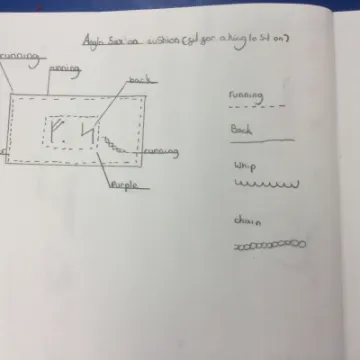 Anglo Saxon cushion (fit for a king to sit on)
running
running
back
running
Purple
running
Back
whip
chain